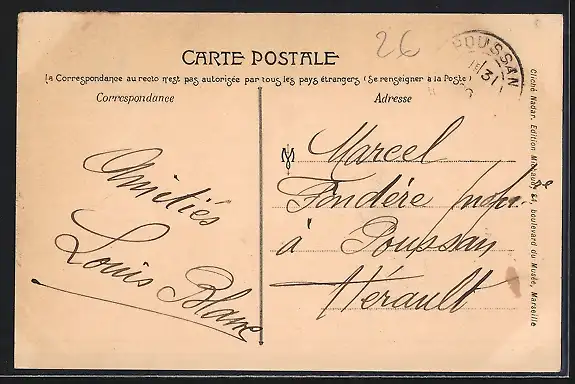 26
CARTE POSTALE
La Correspondance au recto n'est pas autorisée par tous les pays étrangers (Se renseigner à la Poste)
Correspondance
Adresse
POUSSAN
31
Amitiés
Louis Blanc
M Marcel
Fondère
à Poussan
Hérault
Cliché Nadar. Edition 54, boulevard du Musée, Marseille